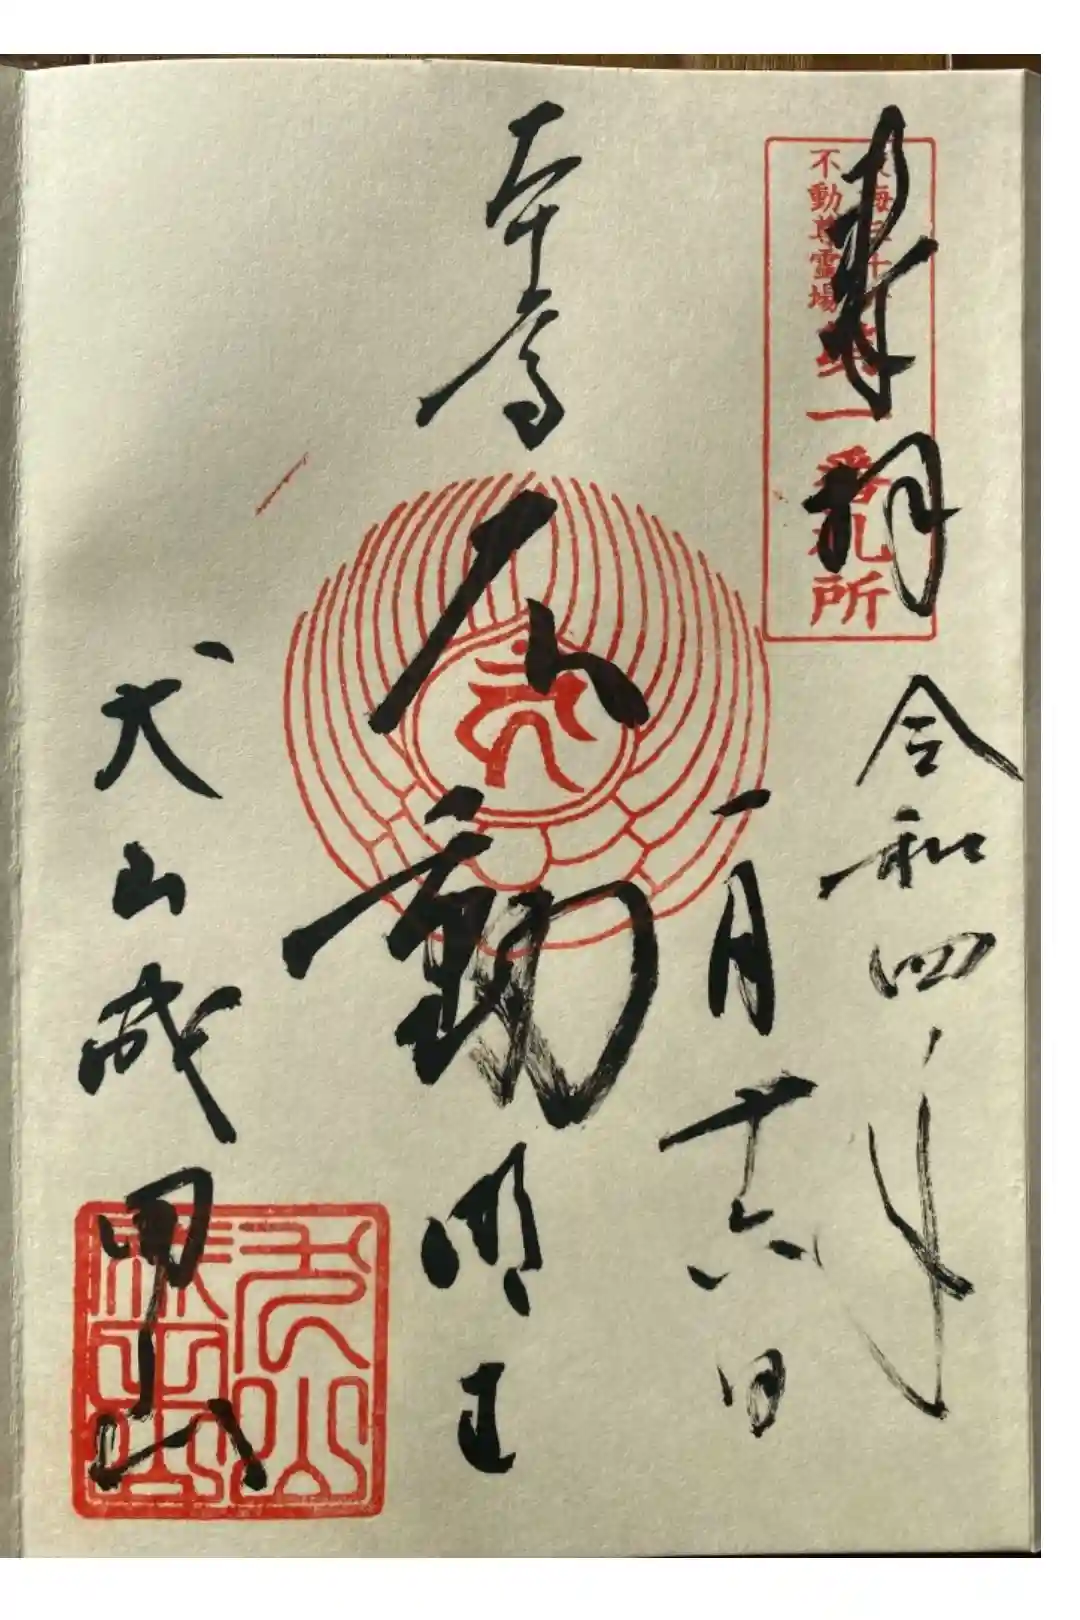 奉拝
東海三十六
不動尊霊場
第一番札所
令和四年
一月十六日
本尊
不動明王
犬山成田山